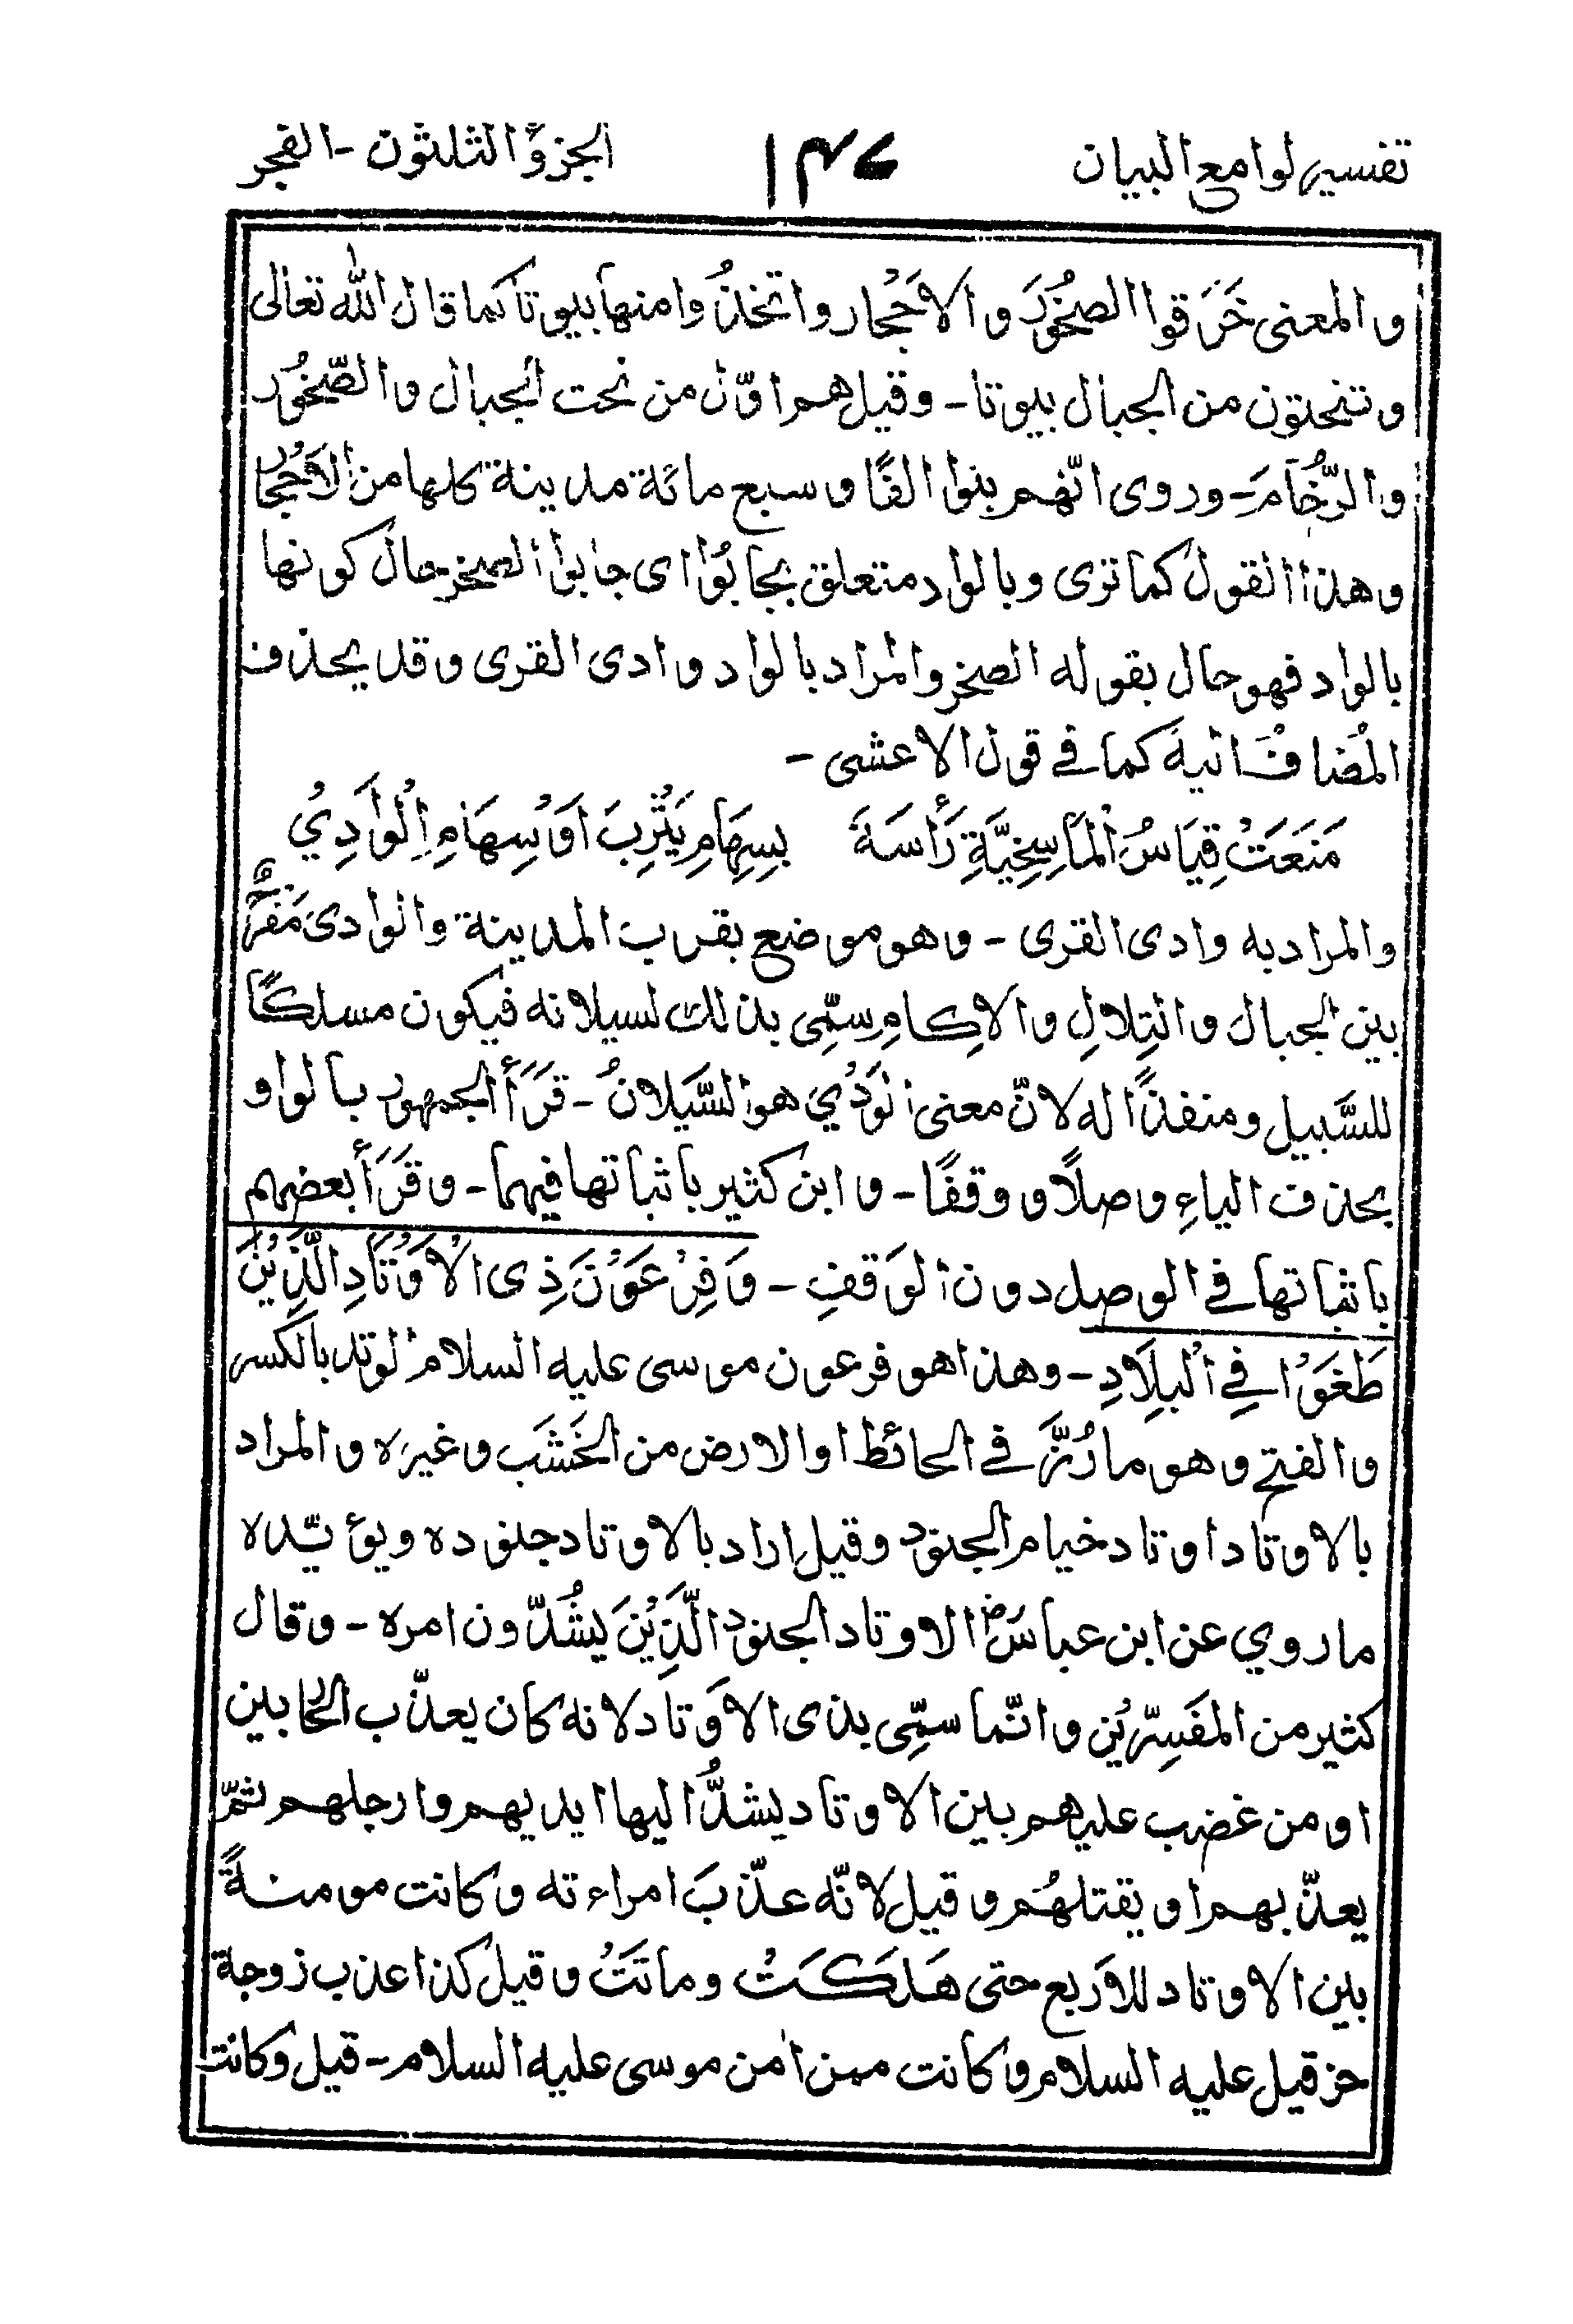 تفسير لوامع البيان ۱۴۷ الجزؤ الثلثون - الفجر
والمعنى خَرَقوا الصخُوْرَ والاَحْجار واتخذُوا منها بيوتا كما قال الله تعالى
وتنحتون من الجبال بيوتا - وقيل هم اوّل من نحت الجبال والصّخوُر
والرُّخَامَ - وروى انّهم بنوا الفًا وسبع مائة مدينة كلها من الاَحْجار
وهذا القول كما ترى وبالواد متعلق بجابُوْا اى جابوا الصخر حال كونها
بالواد فهو حال بقوله الصخر والمراد بالواد وادى القرى وقد يحذف
المُضاف اليه كما فى قول الاعشى -
مَنَعَتْ قِيَاسُ الْمَاسِخِيَّةِ رَأْسَهَ بِسِهَامِ يَثْرِبَ اَوْ سِهَامِ الْوَادِيْ
والمراد به وادى القرى - وهو موضع بقرب المدينة والوادى مَفْرَجٌ
بين الجبال والتِلالِ والاِكامِ سمِّى بذلك لسيلانه فيكون مسلكًا
للسَّبيل ومنفذًا له لانّ معنى الوَدْيِ هو السَّيلانُ - قَرَأَ الجمهور بالواو
بحذف الياءِ وصلًا ووقفًا - وابن كثير باثباتها فيهما - وقَرَأَ بعضهم
باثباتها فى الوصل دون الوَقفِ - وَفِرْعَوْنَ ذِى الْاَوْتَادِ الَّذِيْنَ
طَغَوْا فِي الْبِلَادِ - وهذا هو فرعون موسى عليه السلام الوتد بالكسر
والفتح وهو ما رُزَّ فى الحائط او الارض من الخَشَب وغيره والمراد
بالاوتاد اوتاد خيام الجنود وقيل اراد بالاوتاد جنوده ويؤيّده
ما روي عن ابن عباسؓ الاوتاد الجنود الَّذِيْنَ يشُدّون امره - وقال
كثير من المفَسِّرِيْن وانّما سمِّى بذى الاَوتاد لانه كان يعذّب المحاربين
او من غضب عليهم بين الاوتاد يشدُّ اليها ايديهم وارجلهم ثمّ
يعذّبهم او يقتلهُم وقيل لانّه عذّبَ امراءته وكانت مومنةً
بين الاوتاد للاَربع حتى هَلَكَتْ وماتَتْ وقيل كذا عذب زوجة
حزقيل عليه السلام وكانت ممن اٰمن موسى عليه السلام - قيل وكانت